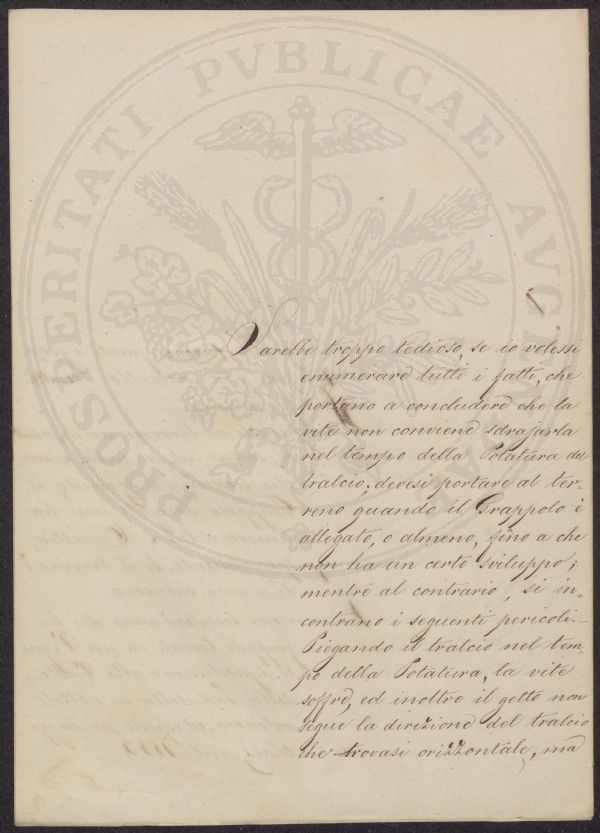 PROSPERITATI PVBLICAE AVGENDAE
Sarebbe troppo tedioso, se io volessi
enumerare tutti i fatti, che
portano a concludere che la
vite non conviene sdrajarla
nel tempo della Potatura del
tralcio; devesi portare al ter-
reno quando il Grappolo è
allegato, o almeno, fino a che
non ha un certo sviluppo;
mentre al contrario, si in-
contrano i seguenti pericoli.-
Piegando il tralcio nel tem-
po della Potatura, la vite
soffre, ed inoltre il getto non
segue la direzione del tralcio
che trovasi orizzontale, ma